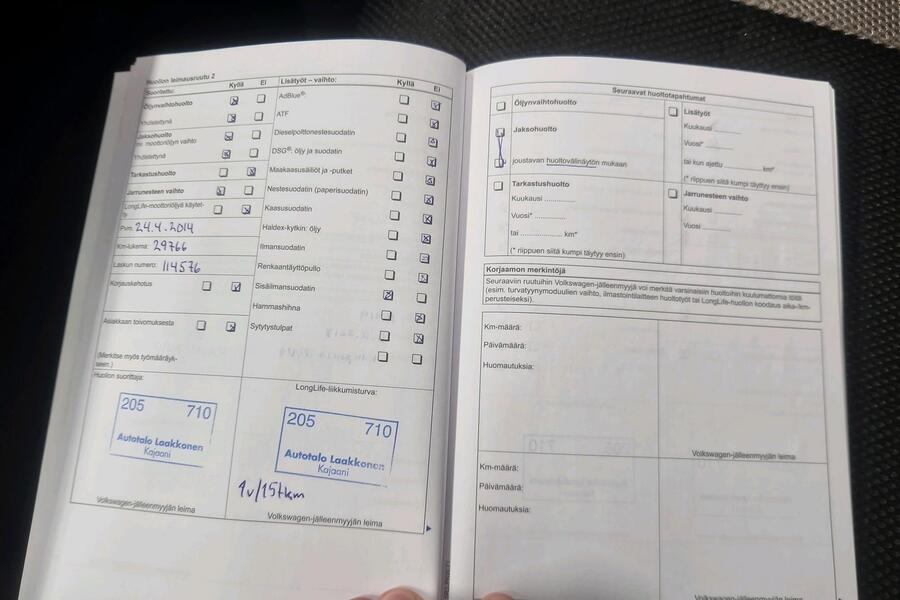 Huollon leimausruutu 2
Suoritettu:
Kyllä
Ei
Öljynvaihtohuolto
Yhdistettynä
Jaksohuolto
moottoriöljyn vaihto
Yhdistettynä
Tarkastushuolto
Jarrunesteen vaihto
LongLife-moottoriöljyä käytet-
Pvm. 24.4.2014
Km-lukema: 29766
Laskun numero: 114576
Korjauskehotus
Asiakkaan toivomuksesta
(Merkitse myös työmääräyk-
seen.)
Lisätyöt – vaihto:
Kyllä
Ei
AdBlue®
ATF
Dieselpolttonestesuodatin
DSG®: öljy ja suodatin
Maakaasusäiliöt ja -putket
Nestesuodatin (paperisuodatin)
Kaasusuodatin
Haldex-kytkin: öljy
Ilmansuodatin
Renkaantäyttöpullo
Sisäilmansuodatin
Hammashihna
Sytytystulpat
Huollon suorittaja:
205 710
Autotalo Laakkonen
Kajaani
Volkswagen-jälleenmyyjän leima
LongLife-liikkumisturva:
205 710
Autotalo Laakkonen
Kajaani
1v/15tkm
Volkswagen-jälleenmyyjän leima
Seuraavat huoltotapahtumat
Öljynvaihtohuolto
Jaksohuolto
joustavan huoltovälinäytön mukaan
Tarkastushuolto
Kuukausi ............
Vuosi* ............
tai ................ km*
(* riippuen siitä kumpi täytyy ensin)
Lisätyöt
Kuukausi ..........
Vuosi* ..........
tai kun ajettu ............... km*
(* riippuen siitä kumpi täytyy ensin)
Jarrunesteen vaihto
Kuukausi ..........
Vuosi ..........
Korjaamon merkintöjä
Seuraaviin ruutuihin Volkswagen-jälleenmyyjä voi merkitä varsinaisiin huoltoihin kuulumattomia töitä
(esim. turvatyynymoduulien vaihto, ilmastointilaitteen huoltotyöt tai LongLife-huollon koodaus aika-/km-
perusteiseksi).
Km-määrä:
Päivämäärä:
Huomautuksia:
Volkswagen-jälleenmyyjän leima
Km-määrä:
Päivämäärä:
Huomautuksia:
Volkswagen-jälleenmyyjän leima